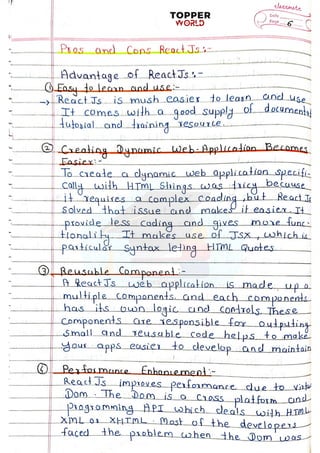 classmate
TOPPER
WORLD
Date
Page 6
Pros and Cons ReactJs :-
Advantage of ReactJs :-
① Easy to learn and use :-
→ ReactJs is mush easier to learn and use
It comes with a good supply of documentat
tutorial and training resource.
② Creating Dynamic Web-Application Becomes
Easier :-
To create a dynamic web application specifi-
cally with HTML Strings was tricy becuase
it requires a complex coading , but React Js
solved that issue and makes it easier. It
provide less coading and gives more func-
tionality. It makes use of Jsx , which is
particular syntax leting HTML Quotes
③ Reusable Component :-
A ReactJs web application is made up o
multiple components and each components
has its own logic and controls. These
components are responsible for outputing
small and reusable code helps to make
your apps easier to develop and maintain
④ Performance Enhancement :-
ReactJs improves performance due to virtu
Dom . The Dom is a cross platform and
programming API which deals with HTML
XML or XHTML . Most of the developers
faced the problem when the Dom was